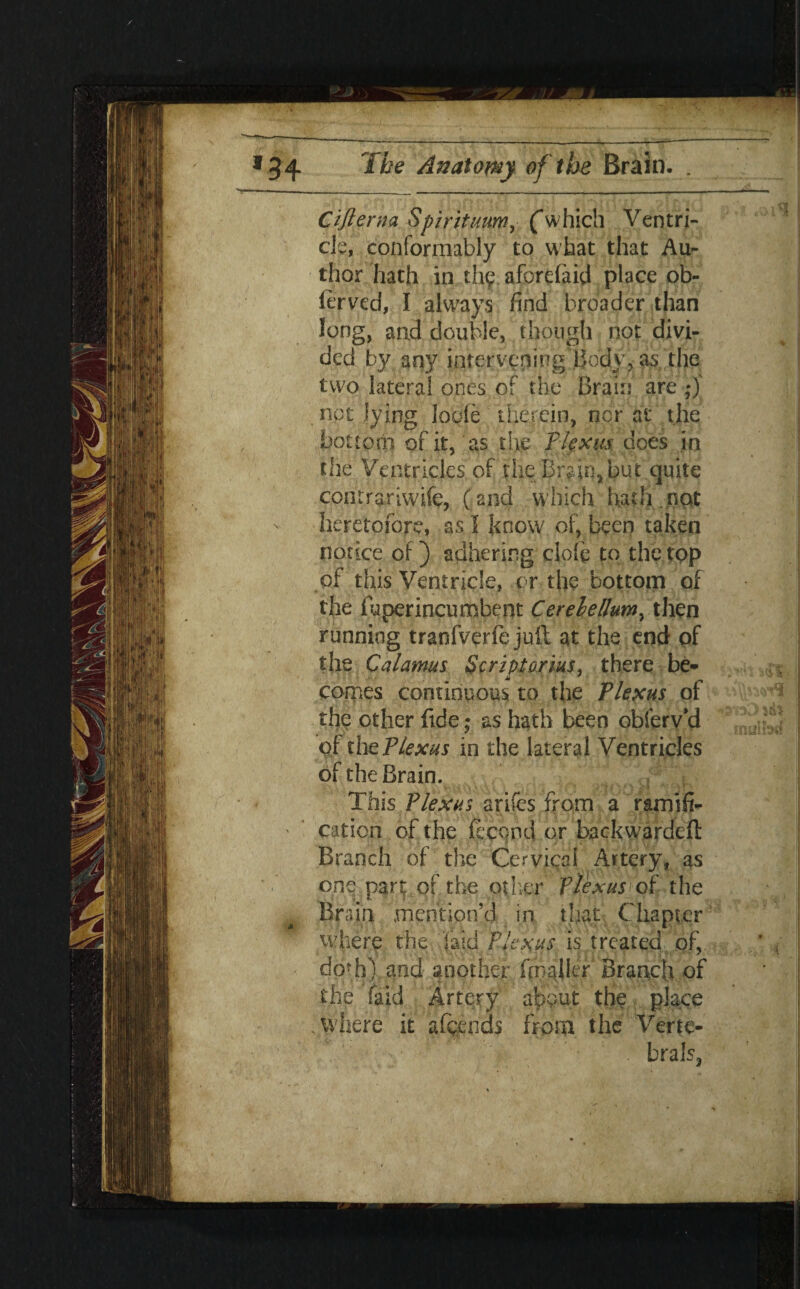 134 The Anatomy of the Brain.
Ciſterna Spirituum, (which Ventri-
cle, conformably to what that Au-
thor hath in the aforeſaid place ob-
ſerved, I always find broader than
long, and double, though not divi-
ded by any intervening Body, as the
two lateral ones of the Brain are;)
not lying looſe therein, nor at the
bottom of it, as the Plexus does in
the Ventricles of the Brain, but quite
contrariwiſe, (and which hath not
heretofore, as I know of, been taken
notice of) adhering cloſe to the top
of this Ventricle, or the bottom of
the ſuperincumbent Cerebellum, then
running tranſverſe juſt at the end of
the Calamus Scriptorius, there be-
comes continuous to the Plexus of
the other ſide; as hath been obſerv'd
of the Plexus in the lateral Ventricles
of the Brain.
This Plexus ariſes from a ramifi-
cation of the ſecond or backwardeſt
Branch of the Cervical Artery, as
one part of the other Plexus of the
Brain mention'd in that Chapter
where the ſaid Plexus is treated of,
doth) and another ſmaller Branch of
the ſaid Artery about the place
where it aſcends from the Verte-
brals,